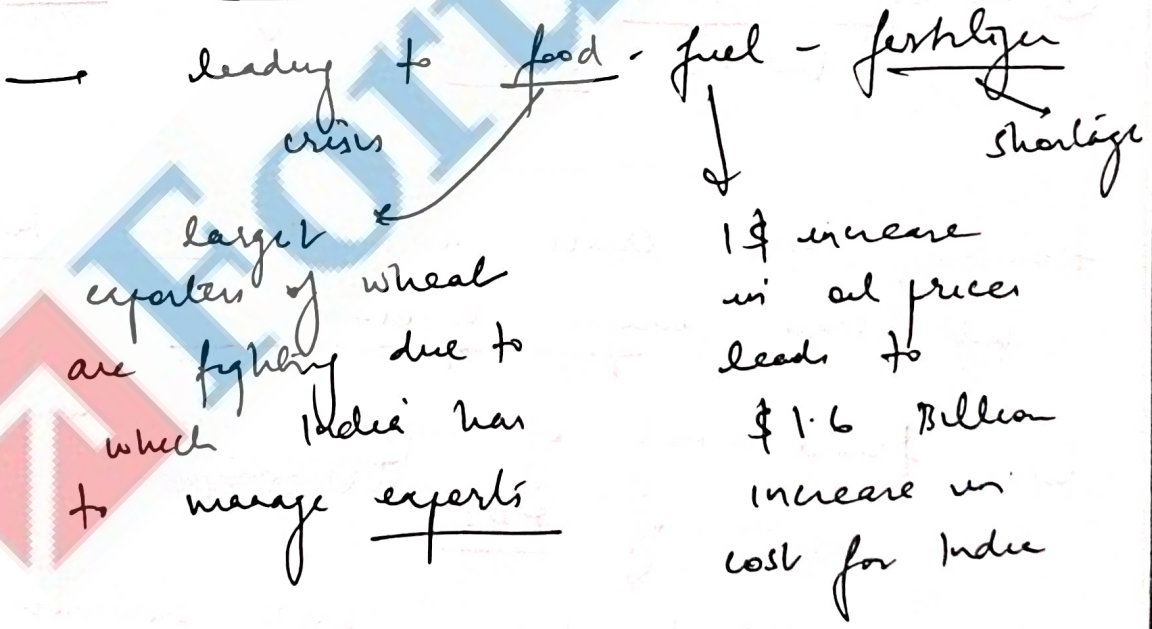 — leading to food - fuel - fertilizer
crisis
shortage
largest
exporters of wheat
are fighting due to
which India has
to manage exports
1$ increase
in oil prices
leads to
$ 1.6 Billion
increase in
cost for India